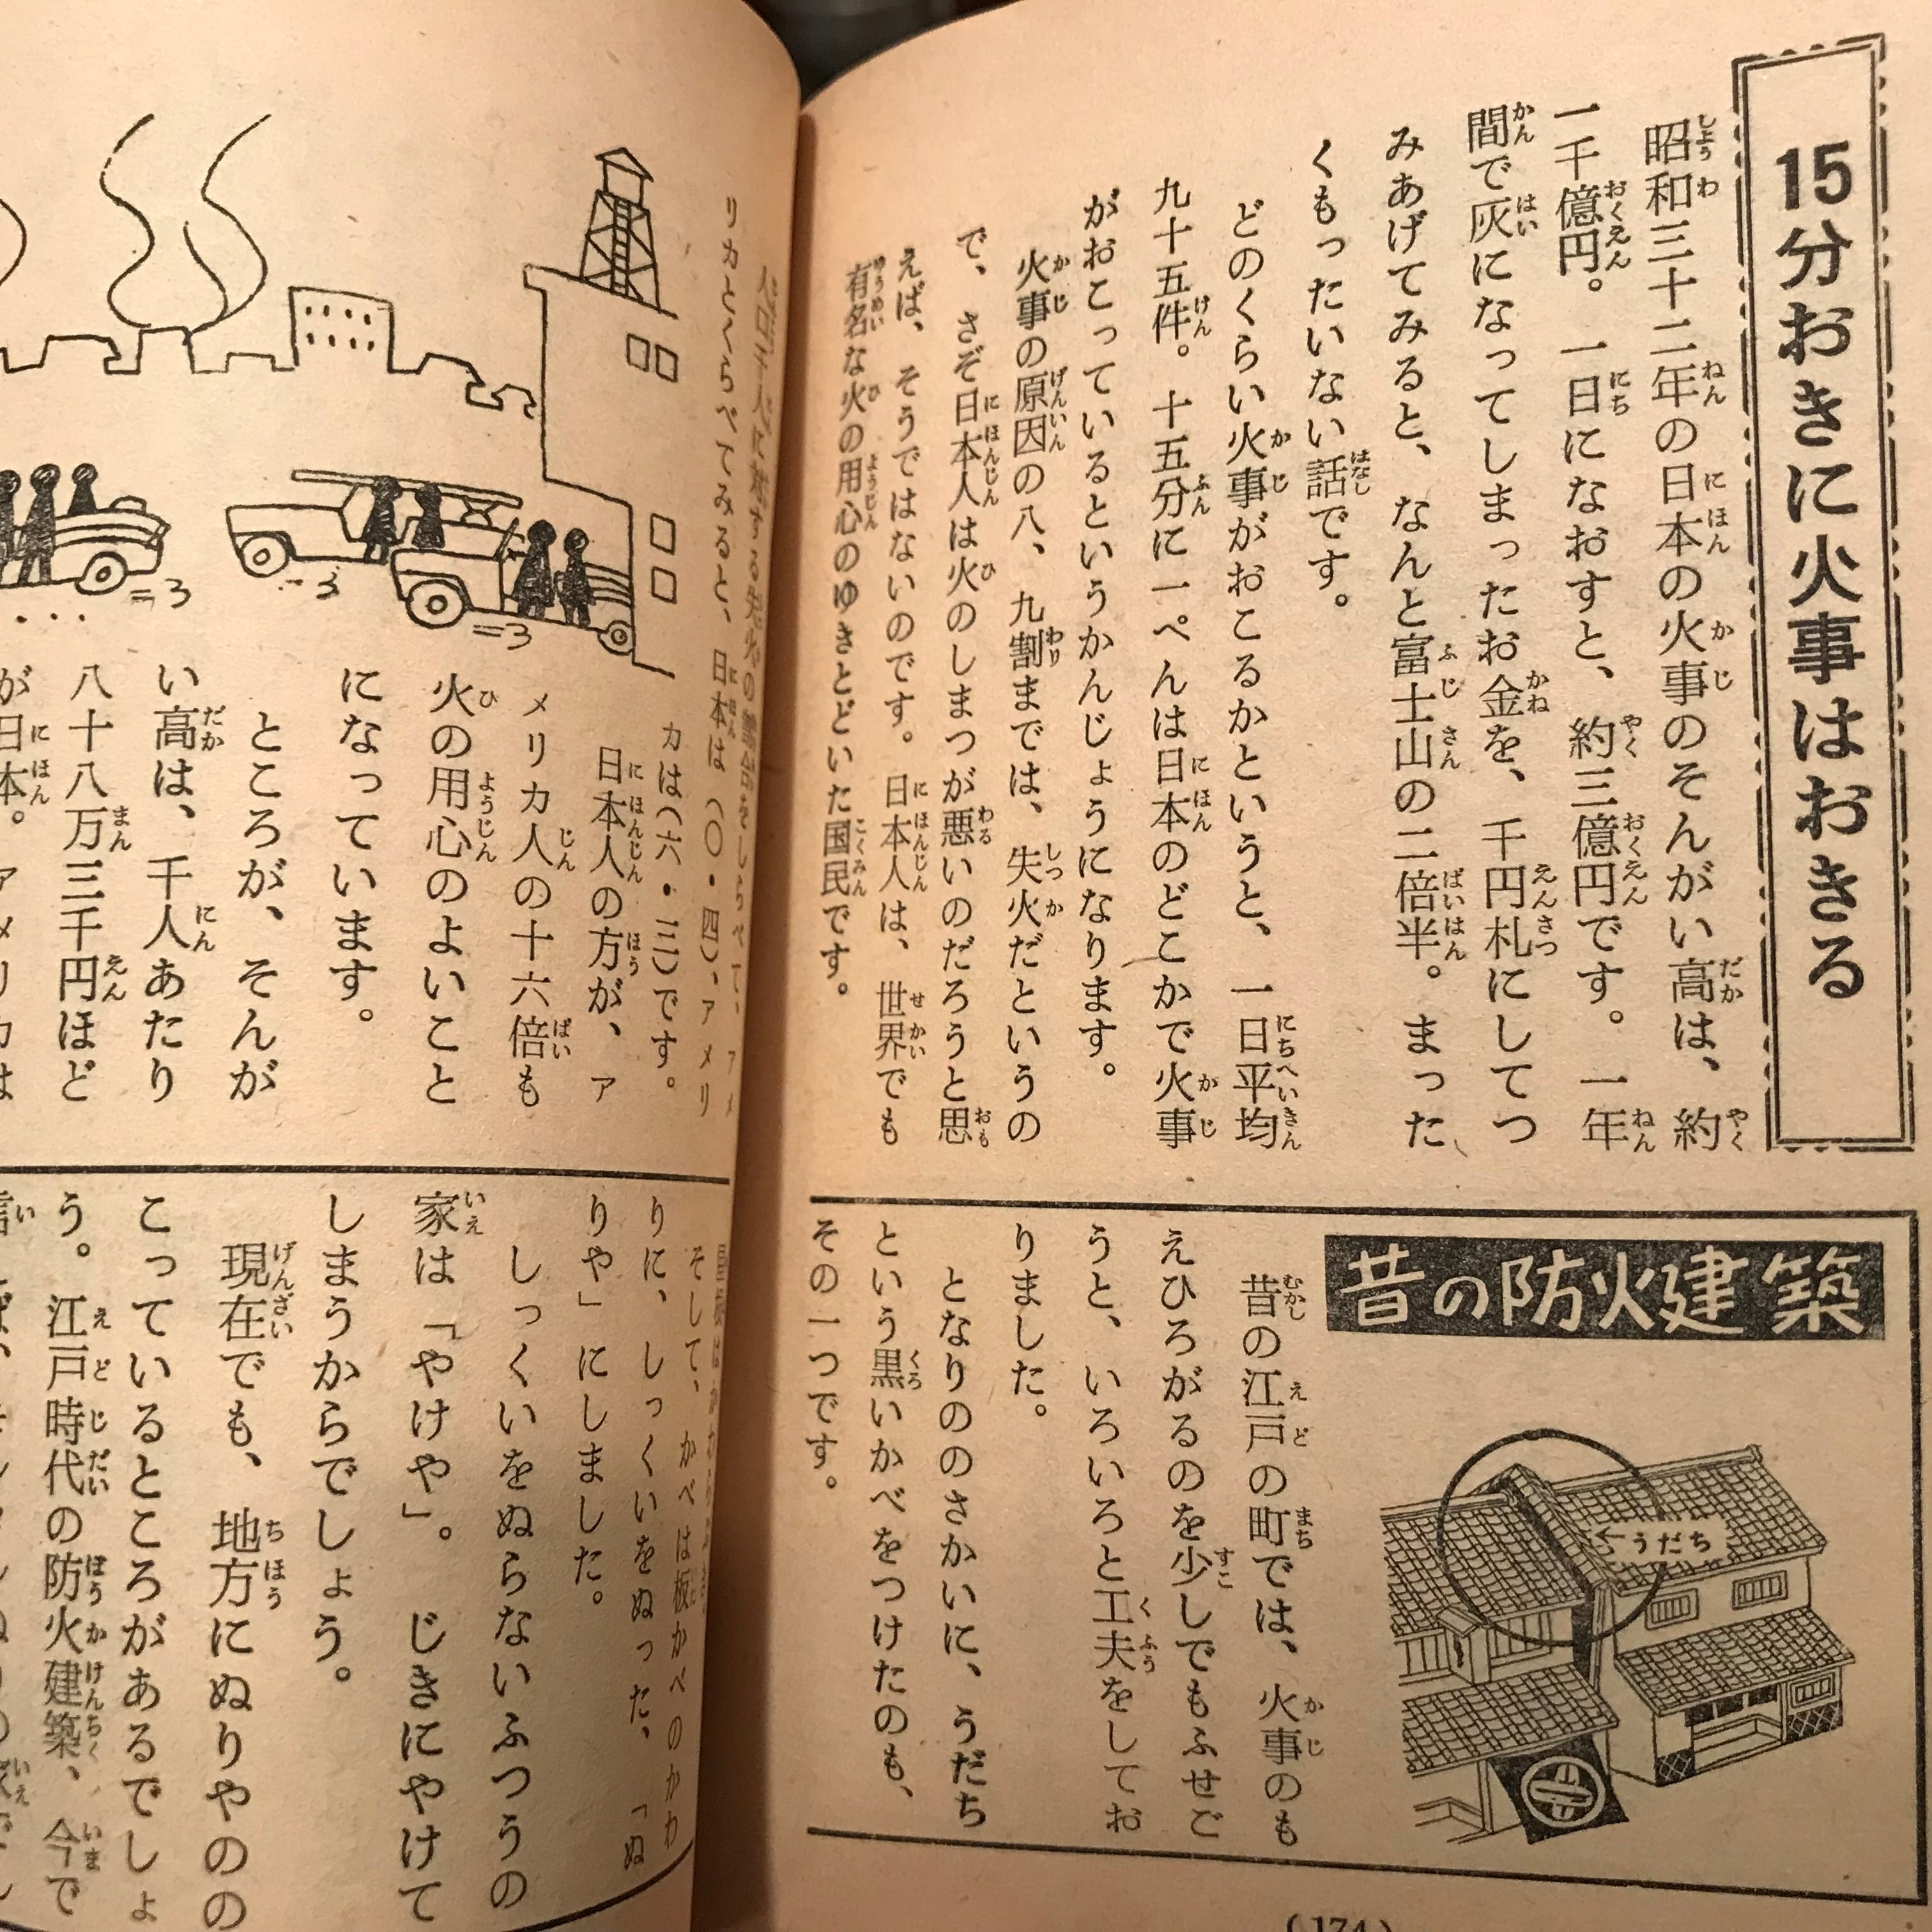 15分おきに火事はおきる
昭和三十二年の日本の火事のそんがい高は、約
一千億円。一日になおすと、約三億円です。一年
間で灰になってしまったお金を、千円札にしてつ
みあげてみると、なんと富士山の二倍半。まった
くもったいない話です。
どのくらい火事がおこるかというと、一日平均
九十五件。十五分に一ぺんは日本のどこかで火事
がおこっているというかんじょうになります。
火事の原因の八、九割までは、失火だというの
で、さぞ日本人は火のしまつが悪いのだろうと思
えば、そうではないのです。日本人は、世界でも
有名な火の用心のゆきとどいた国民です。
昔の防火建築
←うだち
昔の江戸の町では、火事のも
えひろがるのを少しでもふせご
うと、いろいろと工夫をしてお
りました。
となりののさかいに、うだち
という黒いかべをつけたのも、
その一つです。
(174)
人口千人に対する失火の割合をしらべて、アメ
リカとくらべてみると、日本は(〇・四)、アメリ
カは(六・三)です。
日本人の方が、ア
メリカ人の十六倍も
火の用心のよいこと
になっています。
ところが、そんが
い高は、千人あたり
八十八万三千円ほど
が日本。アメリカは
そして、かべは板かべのかわ
りに、しっくいをぬった、「ぬ
りや」にしました。
しっくいをぬらないふつうの
家は「やけや」。じきにやけて
しまうからでしょう。
現在でも、地方にぬりやのの
こっているところがあるでしょ
う。江戸時代の防火建築、今で